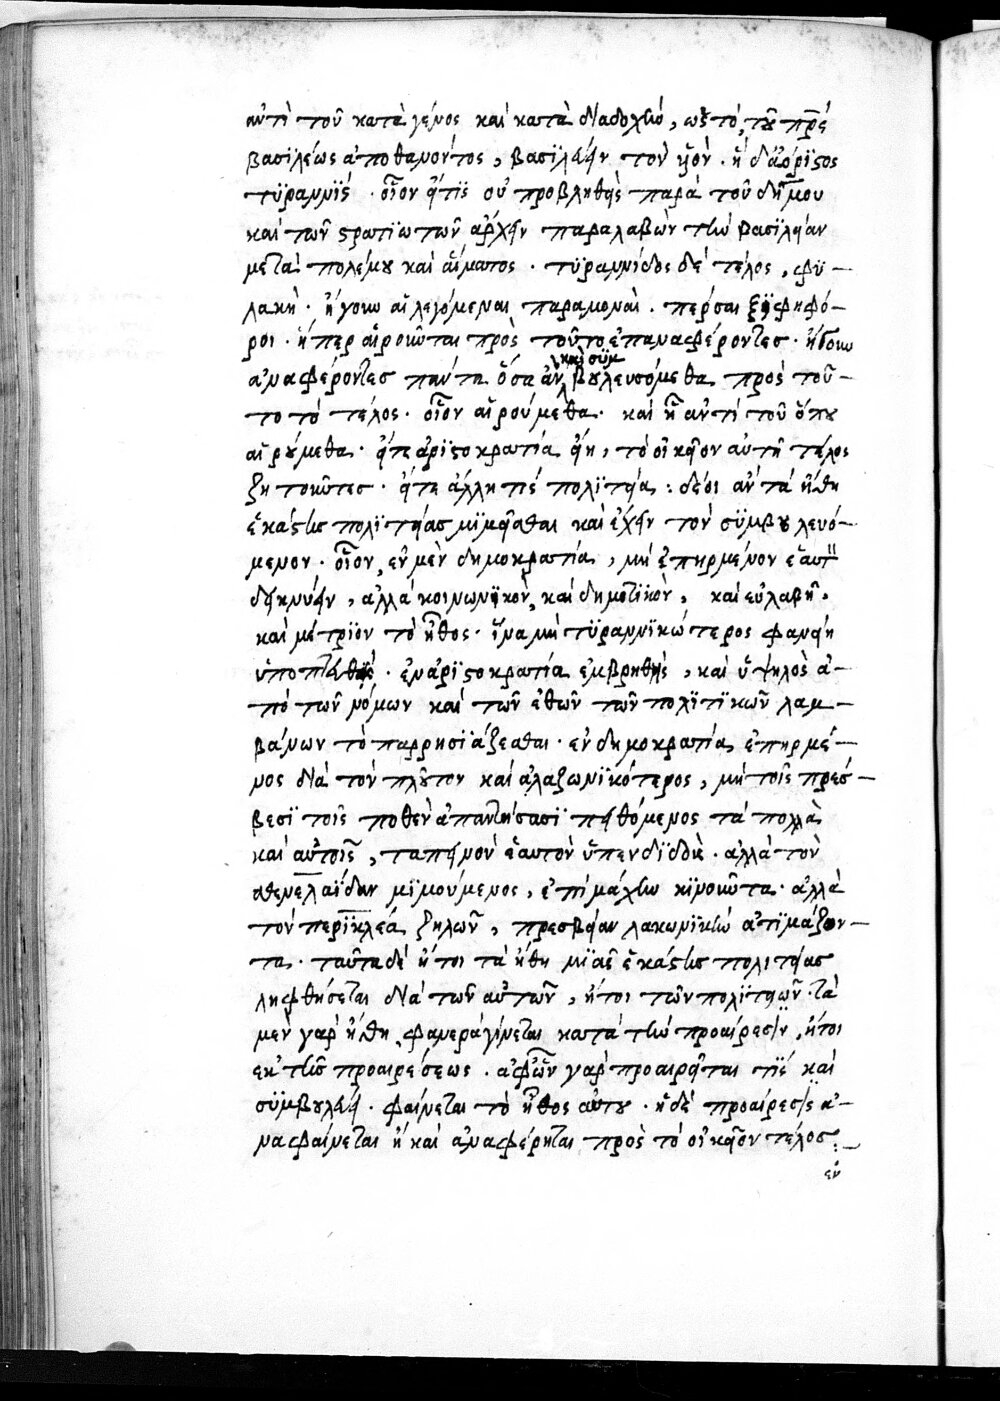 ἀντὶ τοῦ κατὰ γένος καὶ κατὰ διαδοχὴν, ὡς τὸ, τοῦ πρς
βασϊλέως ἀποθανόντος, βασϊλεύειν τὸν υἱόν. ἡ δ' ἀόρϊστος
τϋραννὶς. οἷον ἥτϊς οὐ προβληθεὶς παρὰ τοῦ δήμου
καὶ τῶν στρατϊωτῶν ἄρχειν παραλαβὼν τὴν βασϊλείαν
μετὰ πολέμου καὶ αἵματος. τϋραννίδος δὲ τέλος, φϋ-
λακὴ. ἤγουν αἱ λεγόμεναι παραμοναὶ. πέρσαι ξϊφηφό-
ροι. ἥπερ αἱροῦνται πρὸς τοῦτο ἐπαναφέροντες. ἤγουν
ἀναφέροντες πάντα ὅσα ἂν καὶ συμβουλευσόμεθα πρὸς τοῦ-
το τὸ τέλος. οἷον αἱρούμεθα. καὶ ἢ ἀντὶ τοῦ ὅπου
αἱρούμεθα. εἴτε ἀρϊστοκρατία εἴη, τὸ οἰκεῖον αὐτῆ τέλος
ζητοῦντες. εἴτε ἄλλη τὶς πολϊτεία: δέοι ἂν τὰ ἤθη
ἑκάστης πολϊτείας μϊμεῖσθαι καὶ ἔχειν τὸν σϋμβουλευό-
μενον. οἷον, ἐν μὲν δημοκρατία, μὴ ἐπηρμένον ἑαυτ
δεικνύειν, ἀλλὰ κοινωνϊκὸν, καὶ δημοτϊκὸν, καὶ εὐλαβῆ.
καὶ μέτρϊον τὸ ἦθος. ἵνα μὴ τϋραννϊκώτερος φανείη
ὑποπτευθεὶς. ἐν ἀρϊστοκρατία ἐμβρηθὴς, καὶ ὑψηλὸς ἀ-
πὸ τῶν νόμων καὶ τῶν ἐθῶν τῶν πολϊτϊκῶν λαμ-
βάνων τὸ παρρησϊάζεσθαι. ἐν δημοκρατία ἐπηρμέ-
νος διὰ τὸν πλοῦτον καὶ ἀλαζωνϊκότερος, μὴ τοῖς πρεσ-
βεσϊ τοῖς ποθὲν ἀπαντήσασϊ πειθόμενος τὰ πολλὰ
καὶ αὐτοῖς, ταπεινὸν ἑαυτὸν ὑπενδϊδοὺ. ἀλλὰ τὸν
μενελαϊδαν μϊμούμενος, ἐπὶ μάχην κϊνοῦντα. ἀλλὰ
τὸν περϊκλέα ζηλῶν, πρεσβείαν λακωνϊκὴν ἀτϊμάζον-
τα. ταῦτα δὲ ἤτοι τὰ ἤθη μϊᾶς ἑκάστης πολιτείας
ληφθήσεται διὰ τῶν αὐτῶν, ἤτοι τῶν πολϊτειῶν. τὰ
μὲν γὰρ ἤθη, φανερὰ γίνεται κατὰ τὴν προαίρεσϊν, ἤτοι
ἐκ τῆς προαιρέσεως. ἀφ' ὧν γὰρ προαιρεῖται τϊς καὶ
σϋμβουλεύει. φαίνεται τὸ ἦθος αὐτοῦ. ἡ δὲ προαίρεσϊς ἀ-
ναφαίνεται ἢ καὶ ἀναφέρηται πρὸς τὸ οἰκεῖον τέλος
ἐν